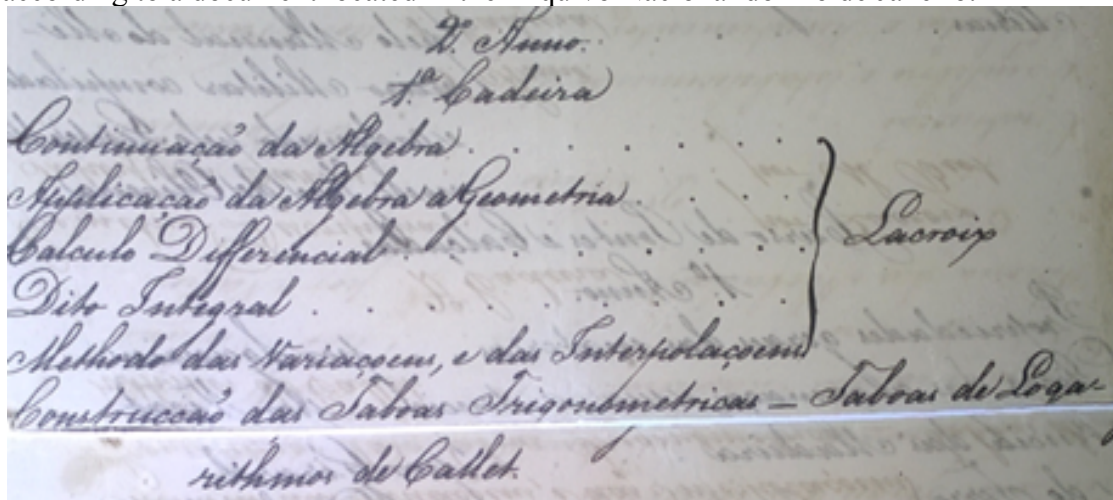 2º Anno.
1ª Cadeira
Continuaçaõ da Algebra . . . . . . .
Applicaçaõ da Algebra a Geometria . . . .
Calculo Differencial . . . . . . . Lacroix
Dito Integral . . . . . . . .
Methodo das Variaçoens, e das Interpolaçoens
Construcçaõ das Taboas Trigonometricas — Taboas de Loga-
rithmos de Callet.